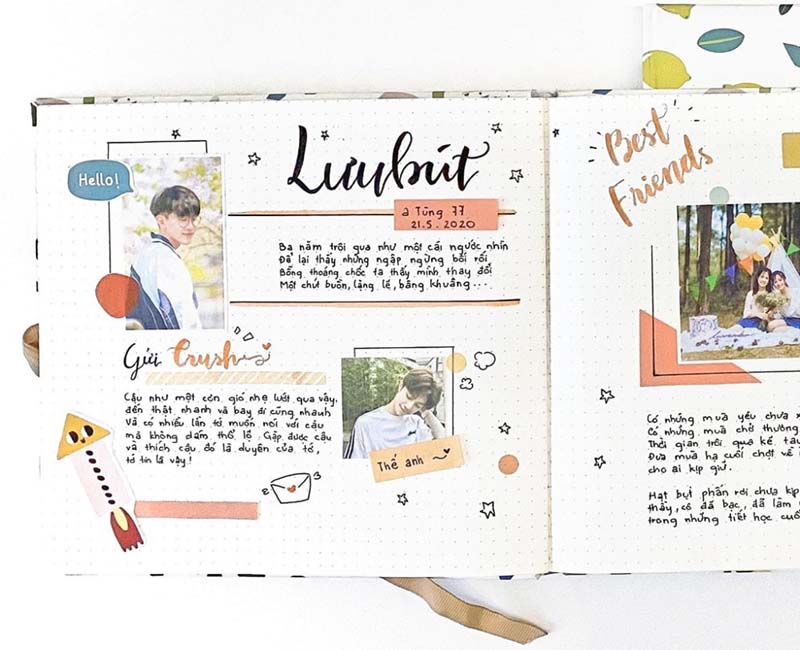 Hello!
Lưu bút
a Tùng 77
21.5.2020
Ba năm trôi qua như một cái ngước nhìn
Để lại thấy những ngập ngừng bối rối
Bỗng thoáng chốc ta thấy mình thay đổi
Một chút buồn, lặng lẽ, bâng khuâng...
Gửi Crush
Cậu như một cơn gió nhẹ lướt qua vậy,
đến thật nhanh và bay đi cũng nhanh
Và có nhiều lần tớ muốn nói với cậu
mà không dám thổ lộ. Gặp được cậu
và thích cậu đó là duyên của tớ,
tớ tin là vậy!
Thế anh
Best
Friends
Có những mùa yêu chưa
Có những mùa chờ thương
Thời gian trôi qua kẽ tay
Đưa mùa hạ cuối chợt về
cho ai kịp giữ.
Hạt bụi phấn rơi chưa kịp
thầy, cô đã bạc, đã làm
trong những tiết học cuối